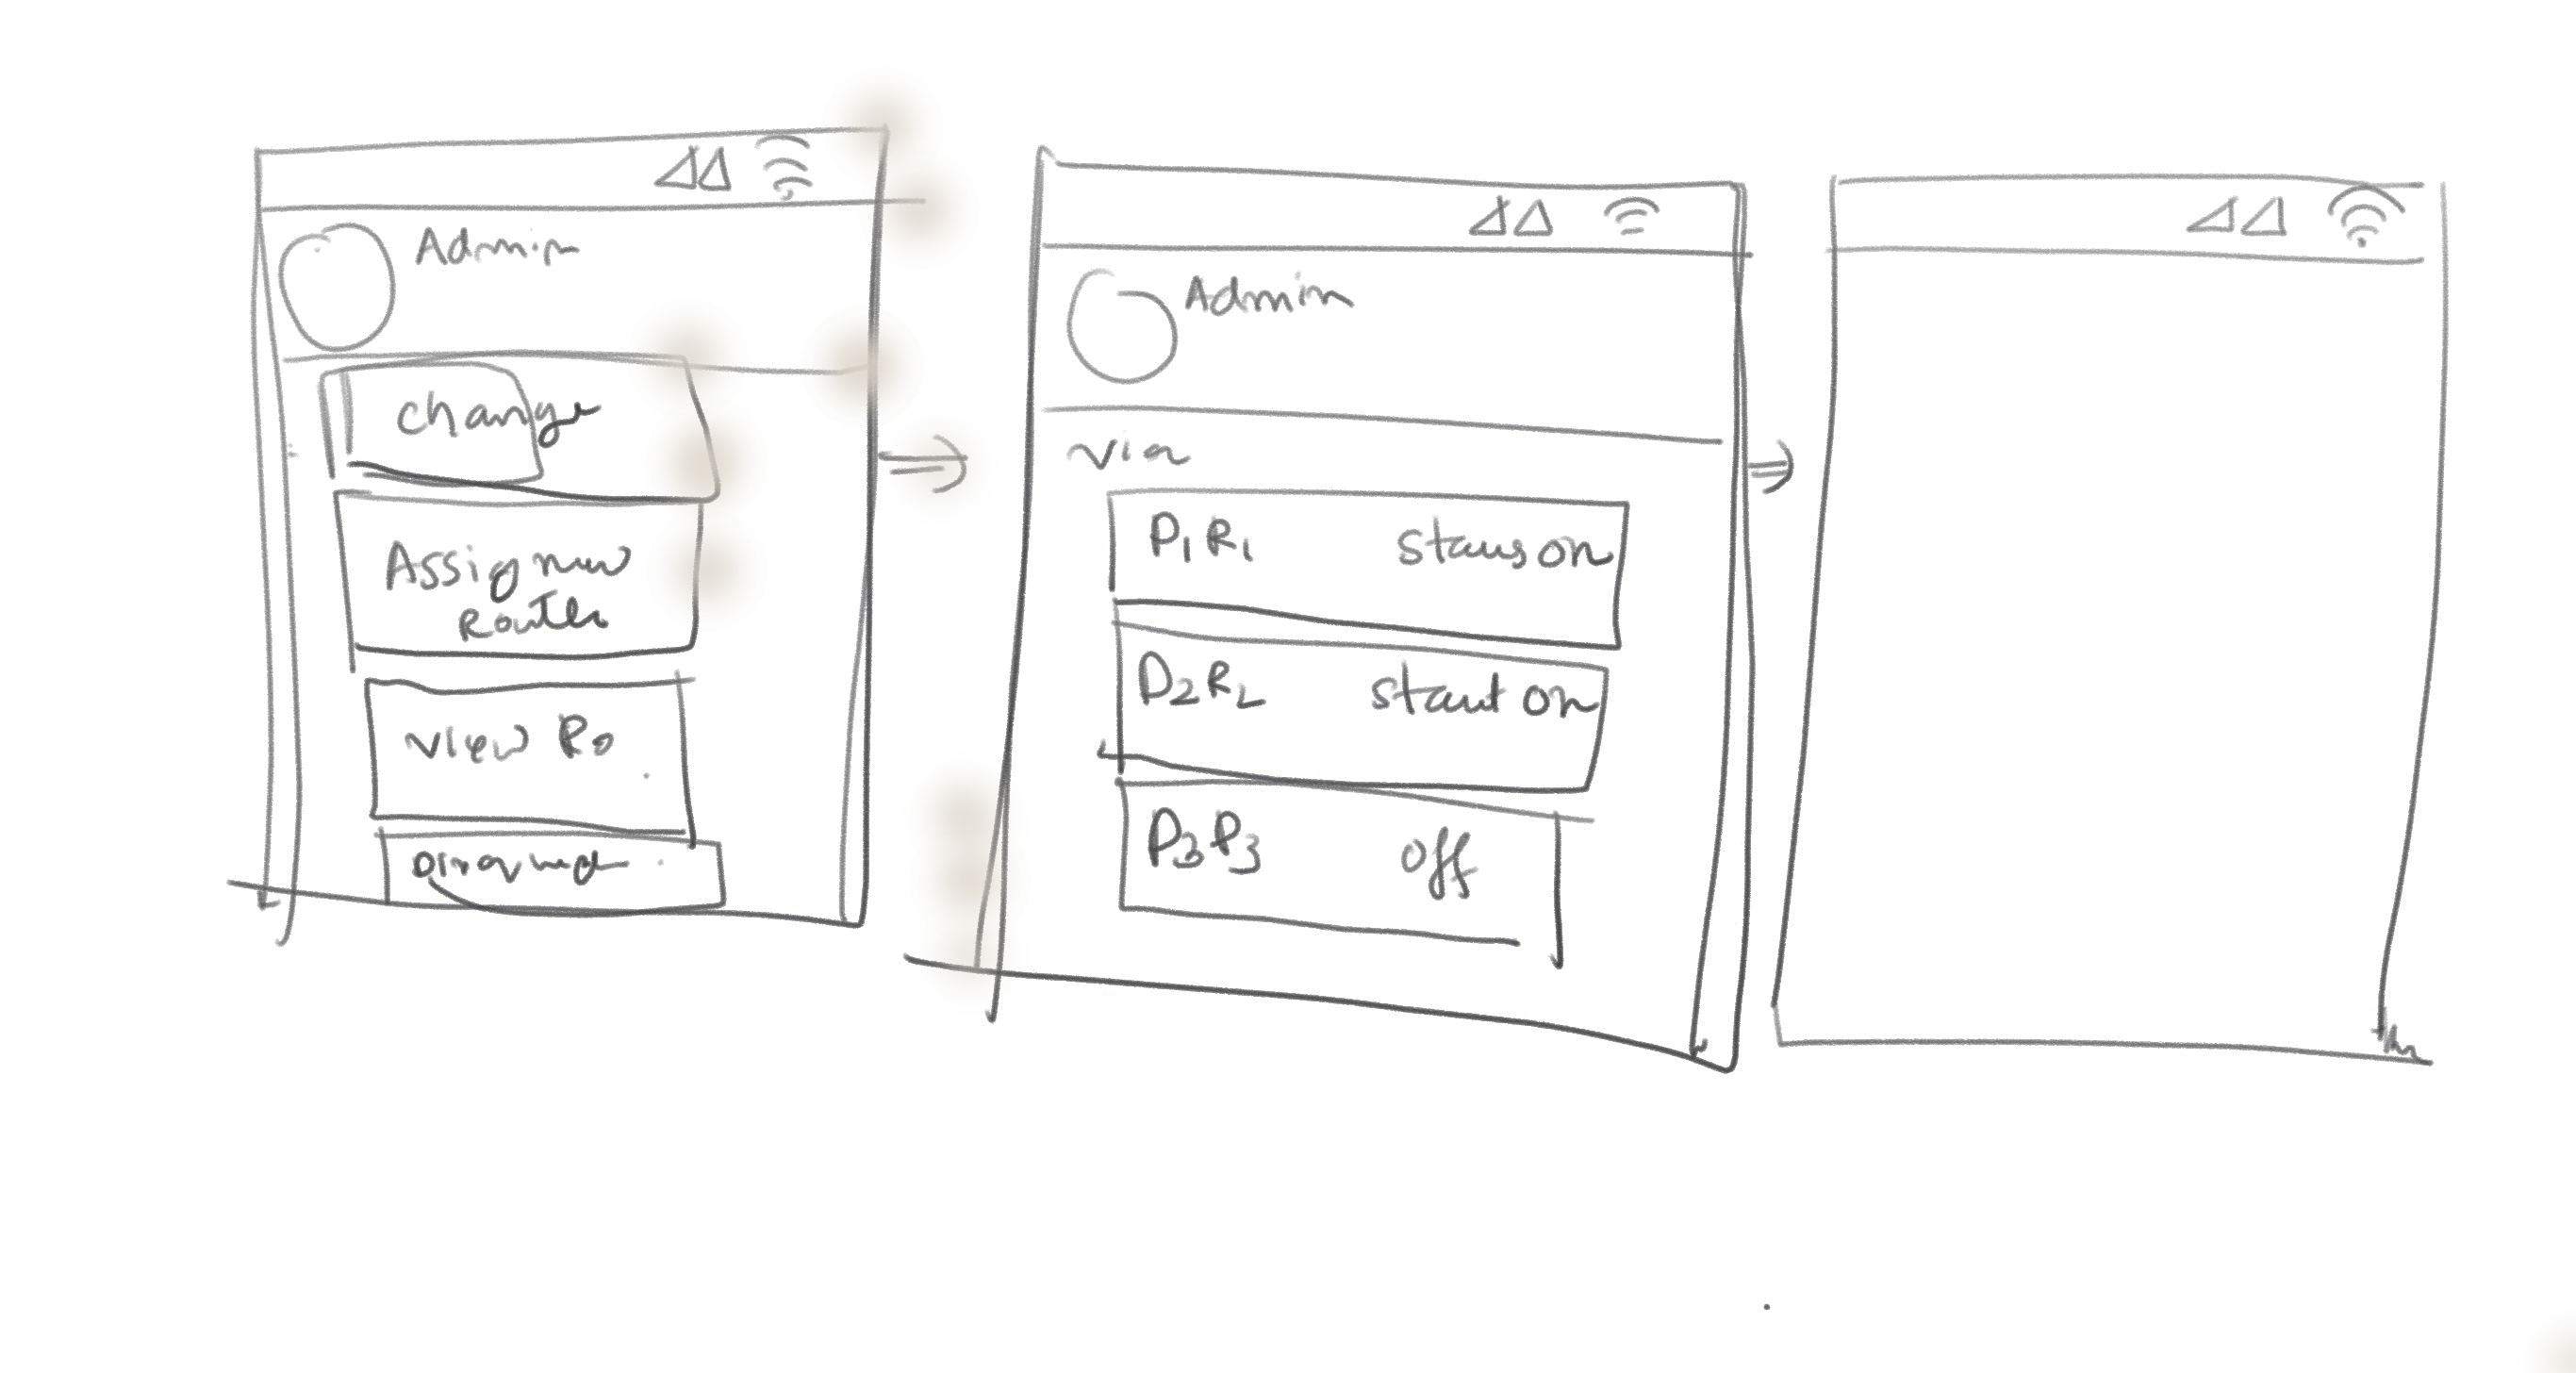 Admin
change
Assign new
Router
view Ro
Admin
via
P1R1 staus on
D2R2 staut on
P3P3 off